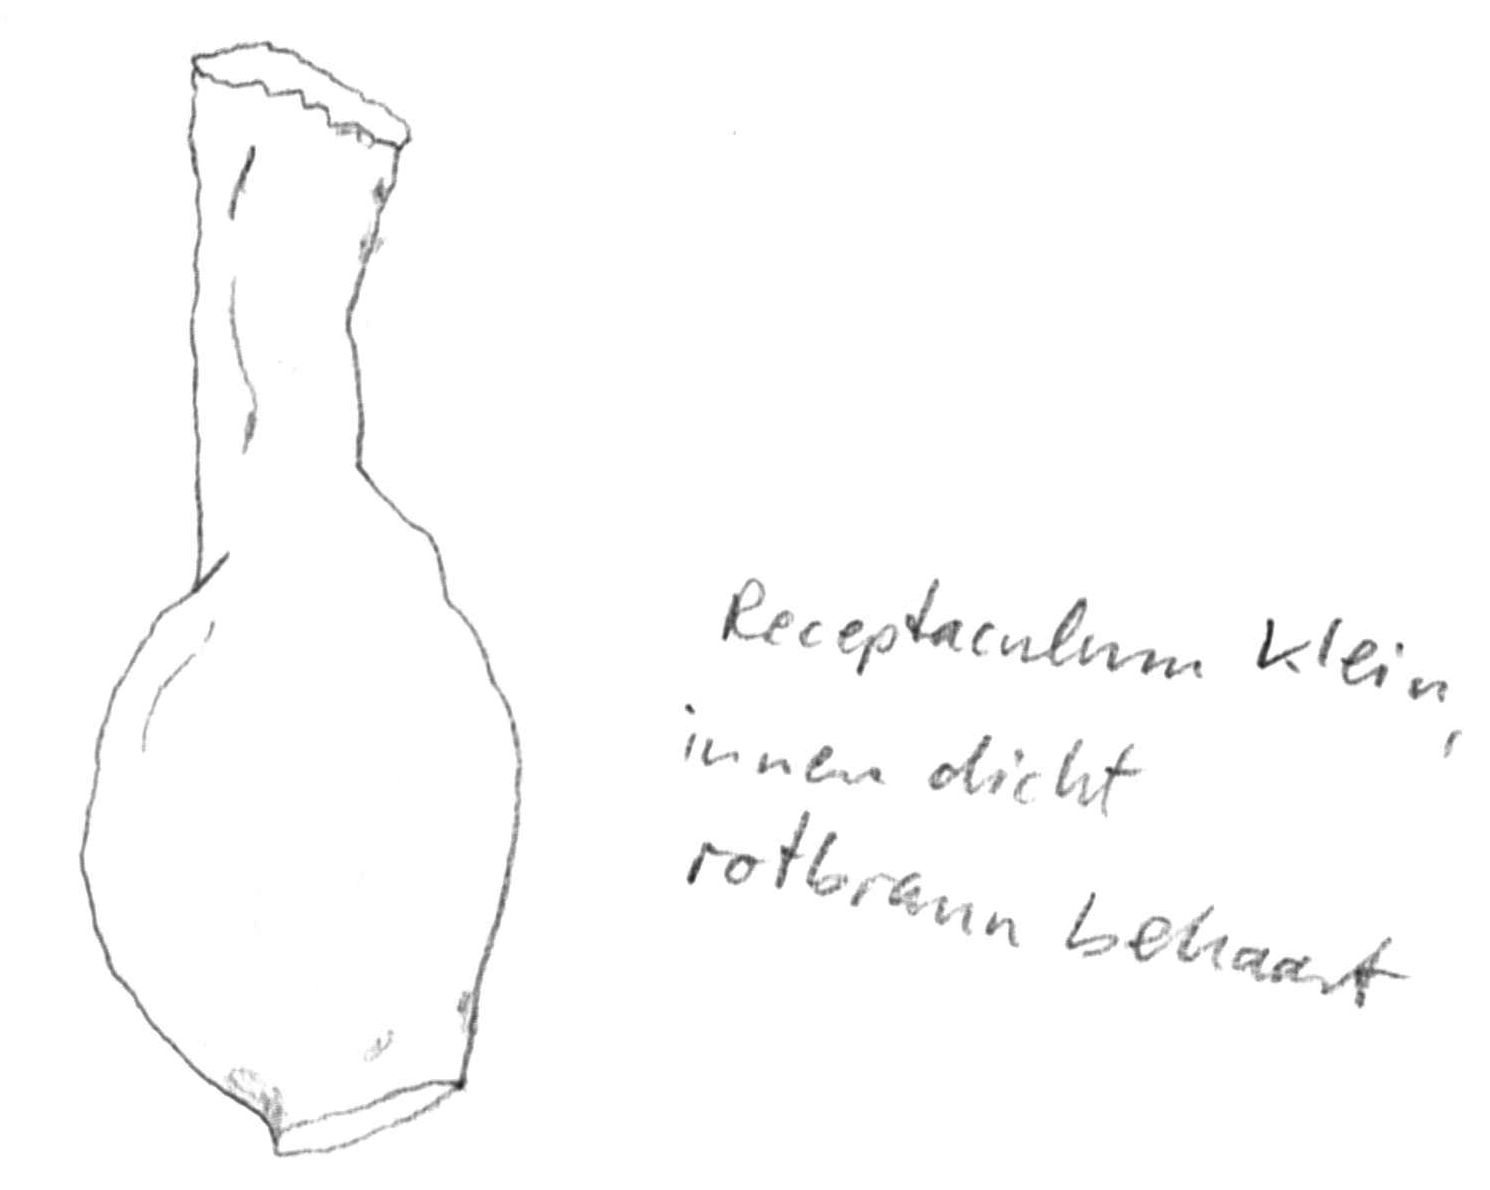 Receptaculum klein,
innen dicht
rotbraun behaart